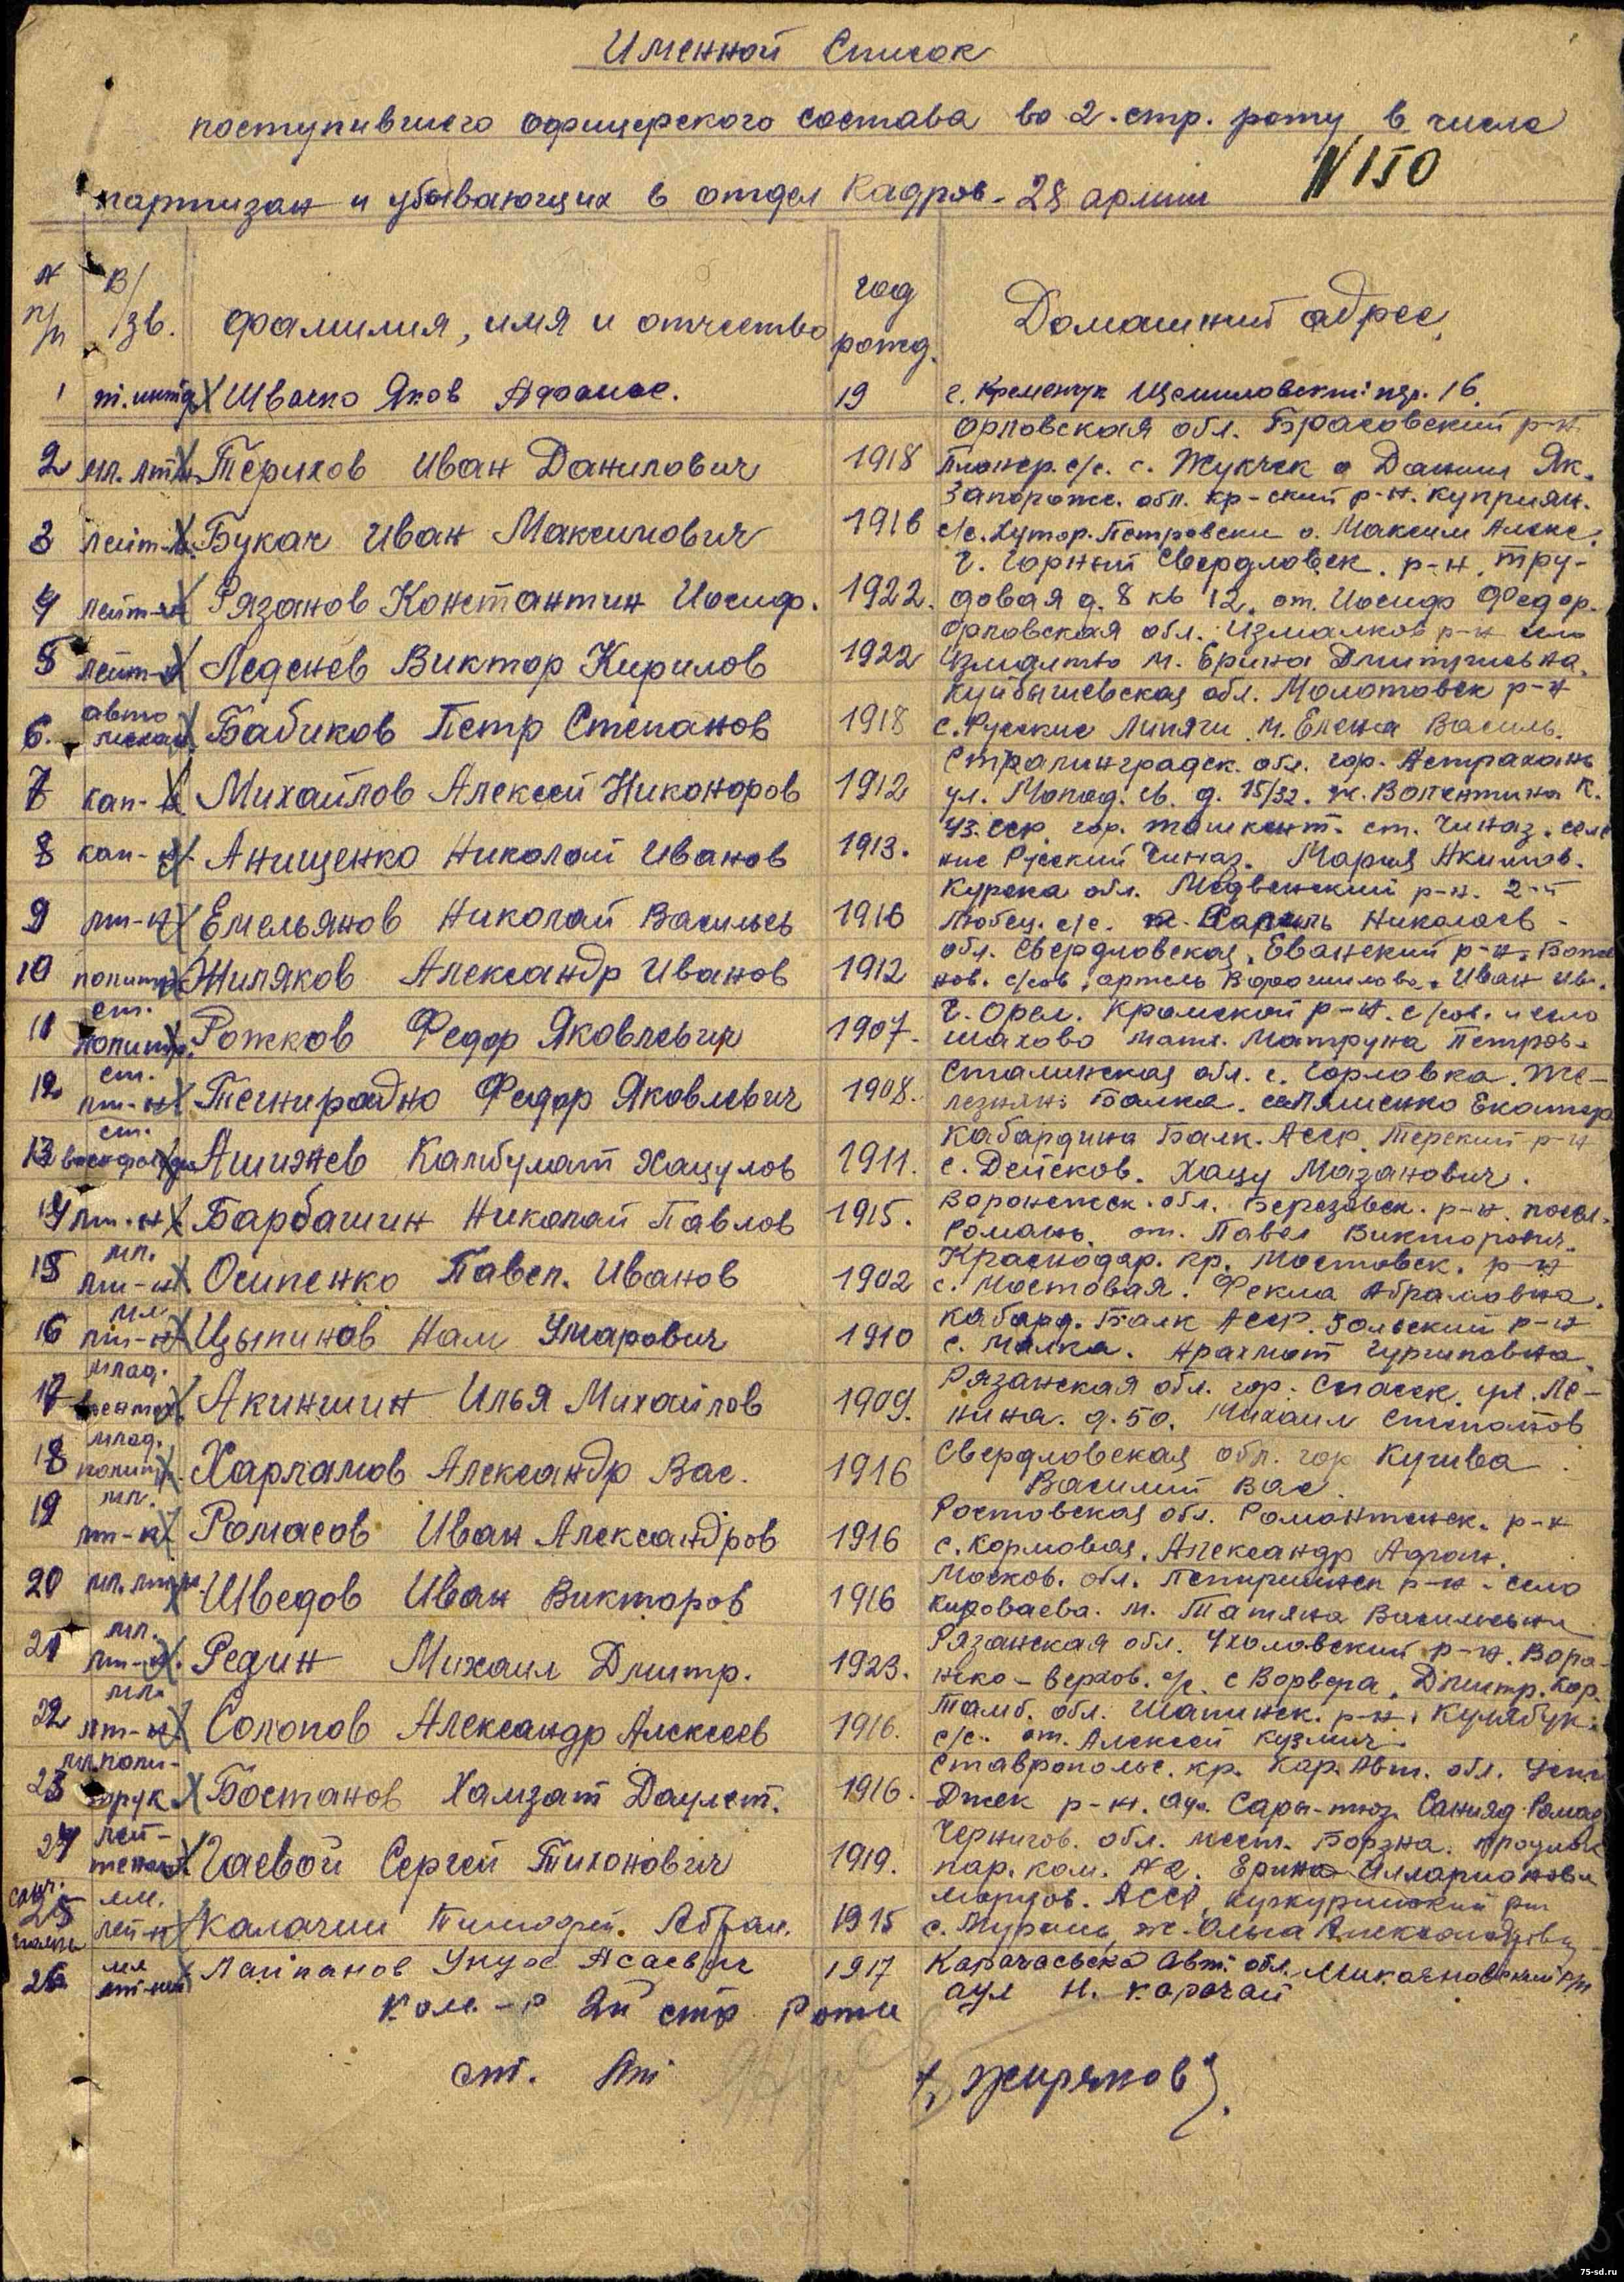 Именной Список
поступившего офицерского состава во 2. стр. роту в числе
N 150
партизан и убывающих в отдел Кадров - 28 армии
N п/п
В/зв.
фамилия, имя и отчество
год рожд.
Домашний адрес
1 т. интд Швачко Яков Афанас. 19 г. Кременчук пер. 16.
Орловская обл. Брасовский р-н
2 мл. лт-н Терихов Иван Данилович 1918 Пионер. с/с. с. Жукчек о Данил Як.
Запорожс. обл. кр-ский р-н. куприян.
3 лейт-н. Букач Иван Максимович 1916 с/с. Хутор. Петровски о. Максим Алекс.
г. Горный Свердловск. р-н. Тру-
4 лейт-н Рязанов Константин Иосиф. 1922. довая д. 8 кв 12. от. Иосиф Федор.
Орловская обл. Измалков р-н село
5 лейт-н Леденев Виктор Кирилов 1922 м. Ерина Дмитриевна.
авто
Куйбышевская обл. Молотовск р-н
6. Бабиков Петр Степанов 1918 с. Русские Липяги м. Елена Василь.
Сталинградск. обл. гор. Астрахань
7 кап-н Михайлов Алексей Никоноров 1912 ул. Молод. г. д. 15/32. ж. Валентина К.
Уз. сср. гор. ташкент. ст. Чиназ. селе
8 кап-н. Анищенко Николай Иванов 1913. ние Русский Чиназ. Мария Акимов.
Курска обл. Медвенский р-н. 2-й
9 лт-н Емельянов Николай Васильев 1916 Любец. с/с. Николаев -
обл. Свердловская, Еванский р-н.
10 политр Жиляков Александр Иванов 1912 нов. с/сов. артель Ворошилова. Иван Ив.
ст.
г. Орел. Кромской р-н. с/сов. село
11 политр. Рожков Федор Яковлевич 1907. шахово Матруна Петров.
ст.
Сталинская обл. г. Горловка. Же-
12 лт-н. Тегнирадно Федор Яковлевич 1908. Балка. Екатер
ст.
Кабардина Балк. Асср. Терский р-н
13 Ашижев Камбулат Хацулов 1911. с. Дейсков. Хацу Мазанович.
Воронежск. обл. Березовск. р-н. посел.
14 лт-н. Барбашин Николай Павлов 1915. от. Павел Викторович.
мл.
Краснодар. кр. Мостовск. р-н
15 лт-н. Осипенко Павел. Иванов 1902 с. Мостовая. Фекла Абрамовна.
мл
Кабард. Балк Асср. Зольский р-н
16 лт-н Цыпинов Нам Умарович 1910 с. Малка.
млад.
Рязанская обл. гор. Спасск. ул. Ле-
17 Акиншин Илья Михайлов 1909. нина. д. 50. Михаил Степанов
млад.
Свердловская обл. гор Кушва
18 политр. Харламов Александр Вас. 1916 Василий Вас.
мл.
Ростовская обл. Романтинск. р-н
19 лт-н Ромасов Иван Александров 1916 с. Кормовая. Александр
Москов. обл. р-н. село
20 мл. лт-н. Шведов Иван Викторов 1916 м. Татяна Васильевна
мл.
Рязанская обл. Ухоловский р-н. Воро-
21 лт-н. Редин Михаил Дмитр. 1923. нско - верхов. с/с. с Ворвера. Дмитр. Кар.
мл.
Тамб. обл. р-н.
22 лт-н Солопов Александр Алексеев 1916. с/с. от. Алексей Кузмич.
мл поли-
Ставропольс. кр. Кар. Авт. обл. Учку
23 трук Бостанов Хамзат Даулет. 1916. Джек р-н. аул. Сары-тюз
лей-
Чернигов. обл. мест. Борзна. проулок
24 тенант. Гаевой Сергей Тихонович 1919. пар. ком. N 2. Ерина Илларионовн
мл.
Мордов. АССР
25 лей-н Калачин Тимофей. Абрам. 1915 ж. Ольга Александровн
мл
Карачаевска Авт. обл. Микояновский рн
26 лт-нт Лайпанов Унух Асаевич 1917 аул Н. карачай
Ком-р 2й стр Роты
ст. лт
/ Жиряков /
75-sd.ru